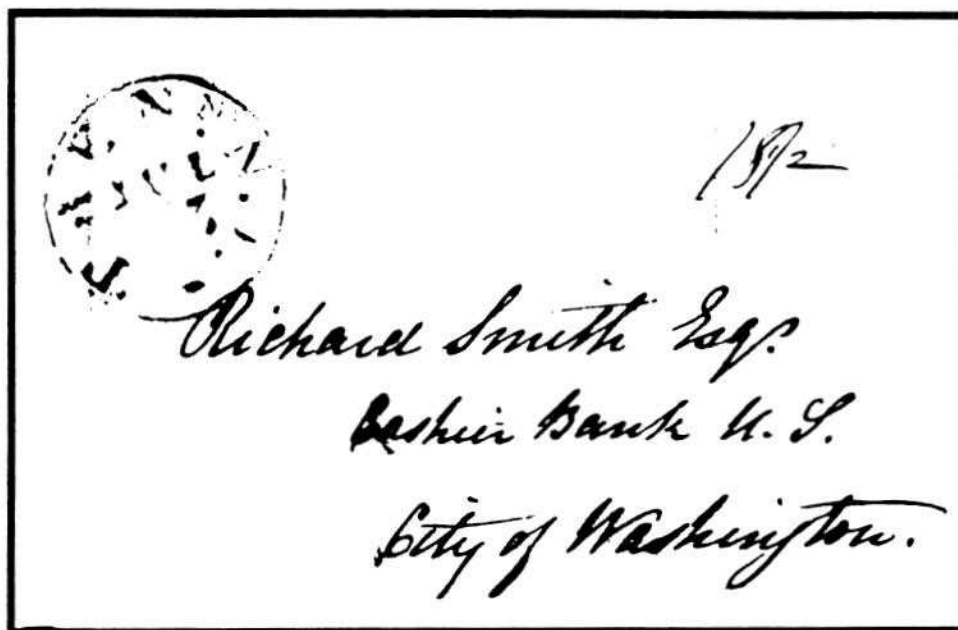 18½
Richard Smith Esqr.
Cashier Bank U. S.
City of Washington.